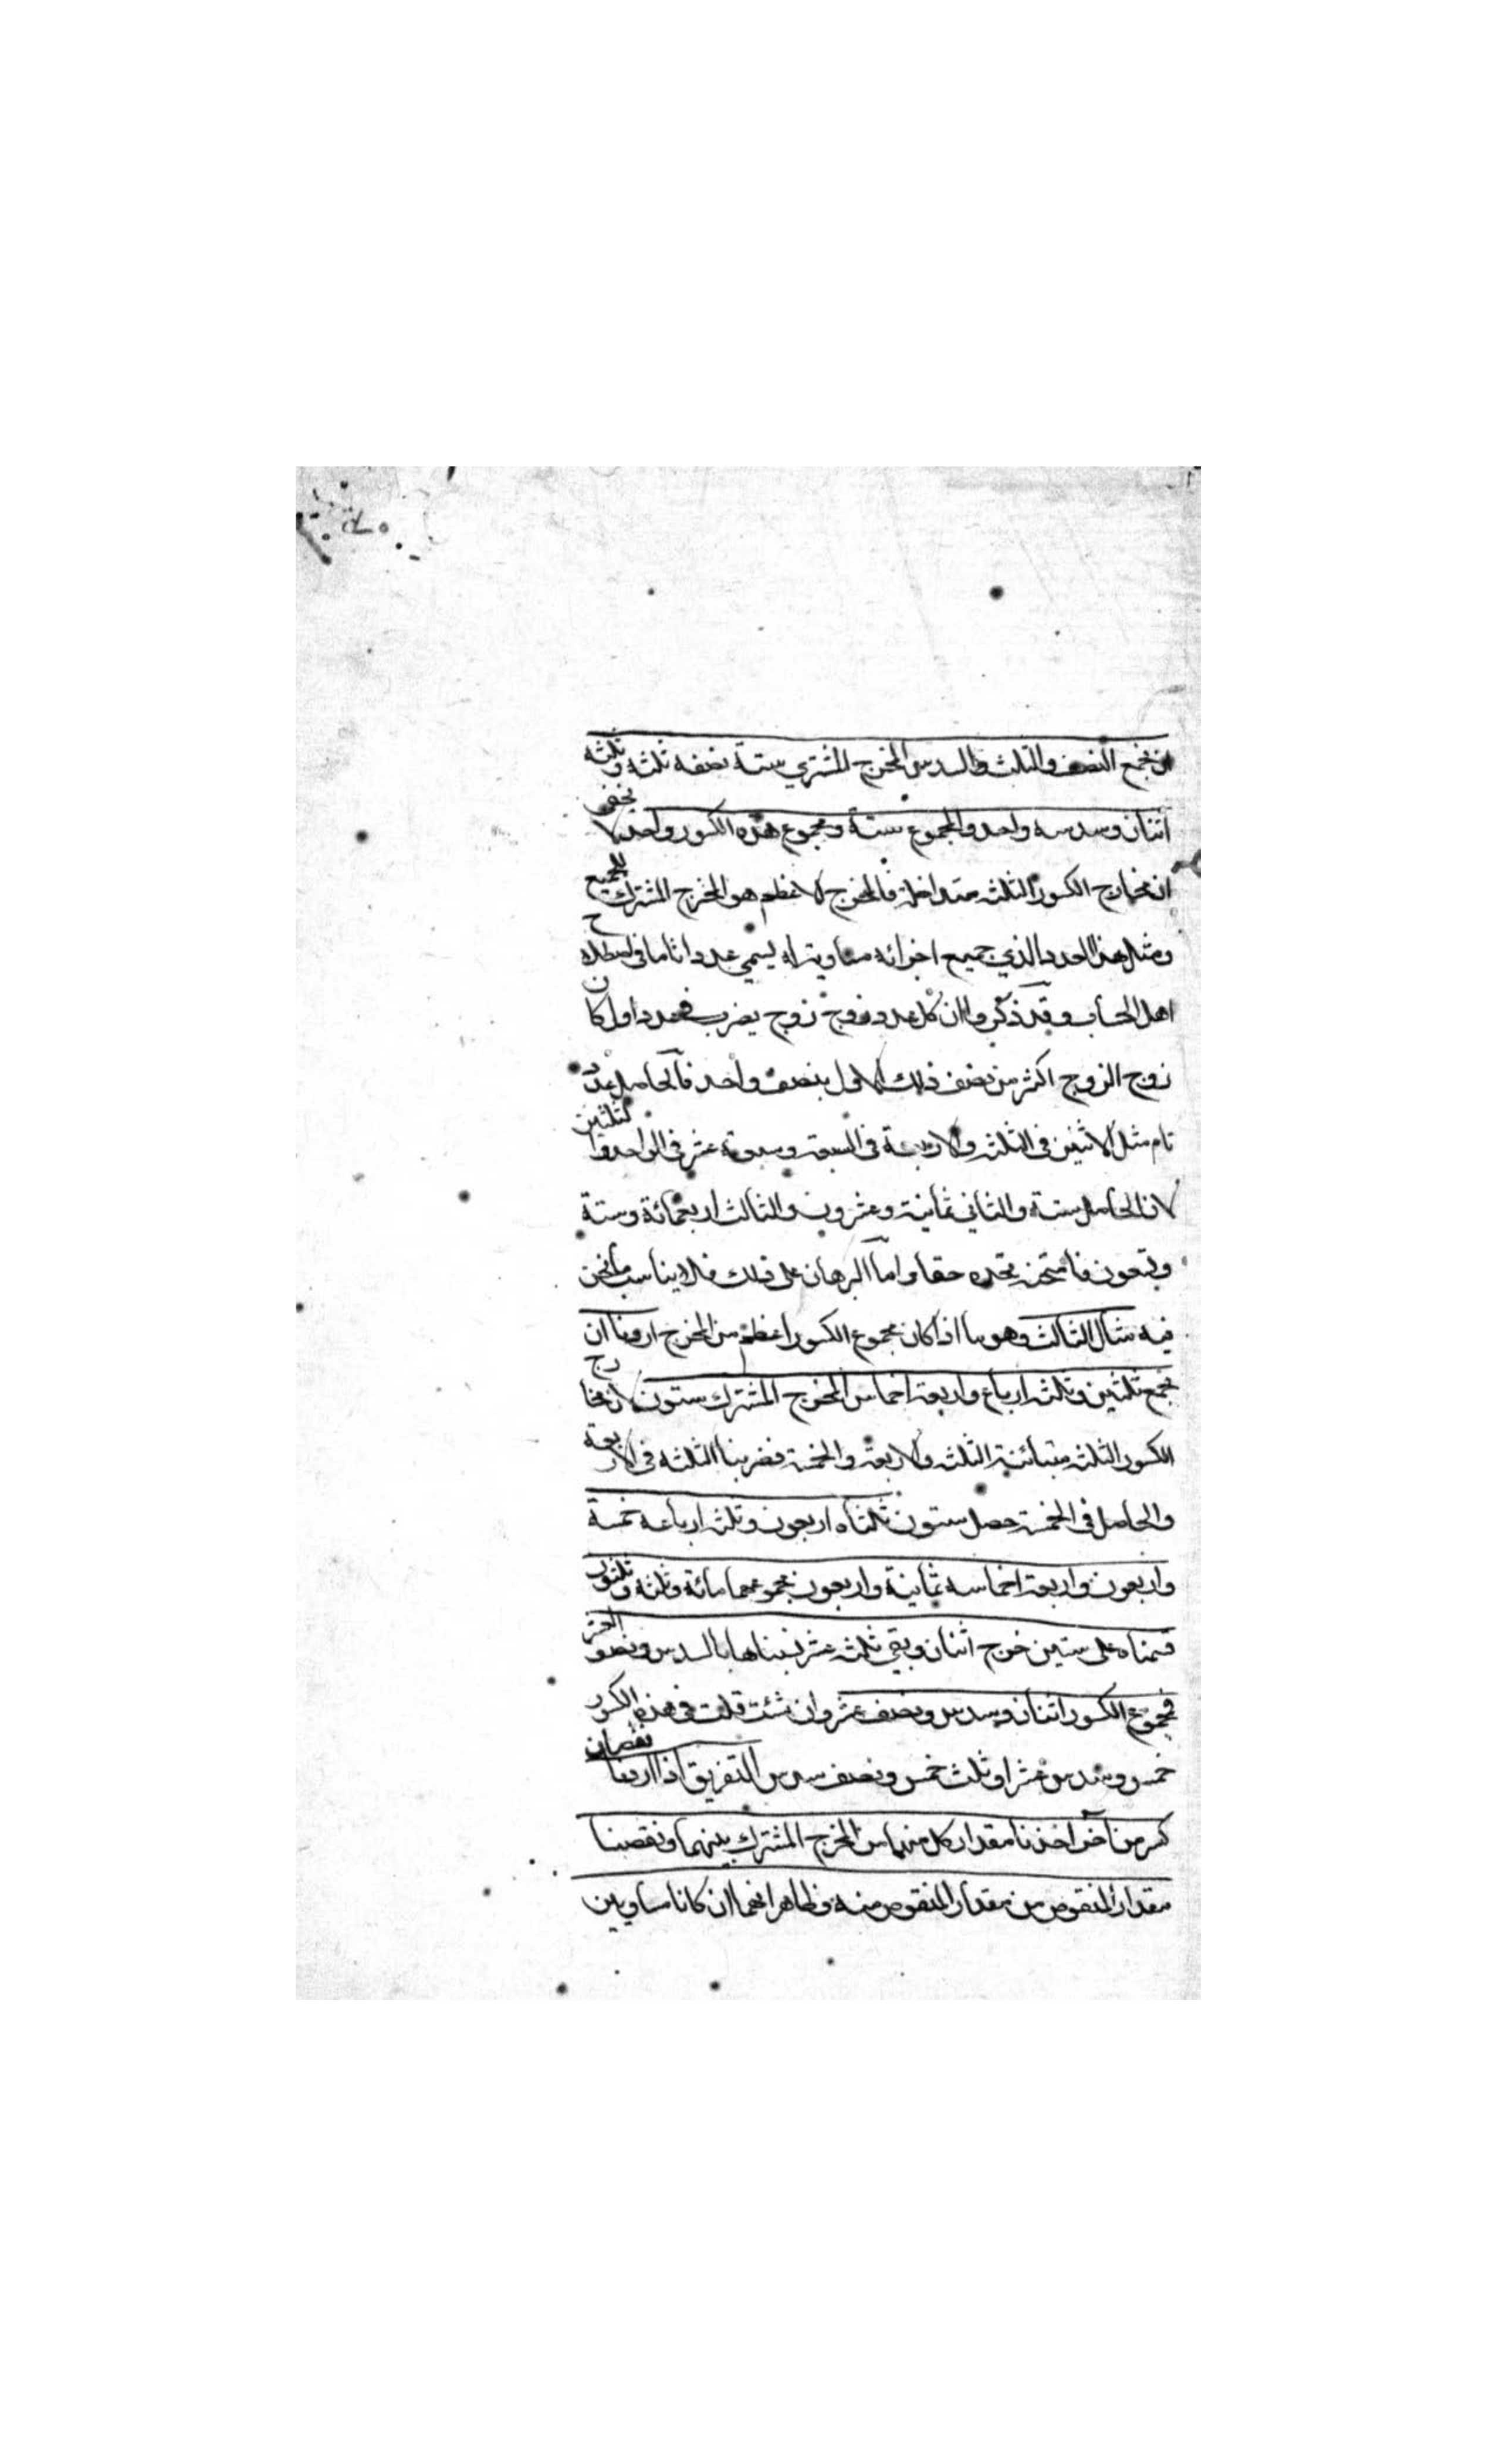 ان نجمع النصف والثلث والسدس المخرج المشتري ستة نصفه ثلثه وثلثه
اثنان وسدسه واحد والمجموع ستة ومجموع هذه الكسور واحد لا يخفى
ان مخارج الكسور الثلثه متداخلة فالمخرج الاعظم هو المخرج المشترك للجميع
ومثل هذا العدد الذي جميع اجزائه مساوية له يسمي عددا تاما في اصطلاح
اهل الحساب وقد ذكروا ان كل عدد زوج زوج يضرب في عدد اول كان
زوج الزوج اكثر من نصف ذلك الاول بنصف واحد فالحاصل عدد
تام مثل الاثنين في الثلثه والاربعة في السبعة وستة عشر في الواحد والثلثين
لان الحاصل ستة والثاني ثمانية وعشرون والثالث اربعمائة وستة
وتسعون فامتحن تجده حقا واما البرهان على ذلك فلا يناسب ما نحن
فيه مثال الثالث وهو ما اذا كان مجموع الكسور اعظم من المخرج اردنا ان
نجمع ثلثين وثلثه ارباع واربعة اخماس المخرج المشترك ستون لان مخارج
الكسور الثلثه متبائنة الثلثه والاربعة والخمسة فضربنا الثلثه في الاربعة
والحاصل في الخمسة حصل ستون ثلثاه اربعون وثلثه ارباعه خمسة
واربعون واربعة اخماسه ثمانية واربعون مجموعها مائة وثلثة وثلثون
قسمناه على ستين خرج اثنان وبقي ثلثه عشر نسبناها بالسدس ونصف العشر
فمجموع الكسور اثنان وسدس ونصف عشر وان شئت قلت في هذه الكسور
خمس وسدس عشر او ثلث خمس ونصف سدس التفريق اذا اردنا نقصان
كسر من آخر اخذنا مقدار كل منهما من المخرج المشترك بينهما ونقصنا
مقدار المنقوص من مقدار المنقوص منه وظاهر انهما ان كانا مساويين